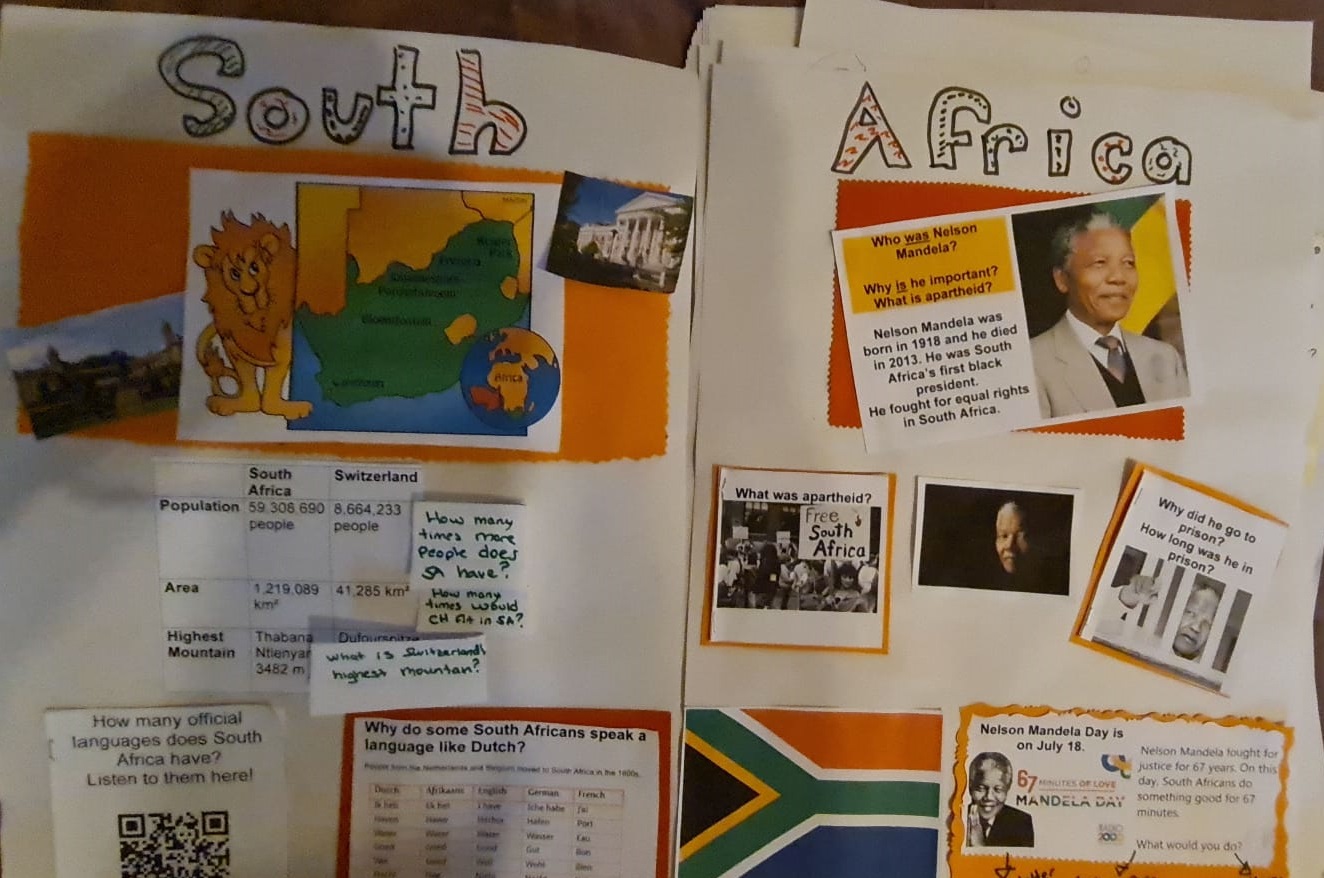 South
Africa
Africa
Who was Nelson
Mandela?
Why is he important?
What is apartheid?
Nelson Mandela was
born in 1918 and he died
in 2013. He was South
Africa's first black
president.
He fought for equal rights
in South Africa.
South Africa Switzerland
Population 59,308,690 people 8,664,233 people
Area 1,219,089 km² 41,285 km²
Highest Mountain Thabana 3482 m
How many
times more
people does
SA have?
How many
times would
CH fit in SA?
What is Switzerland's
highest mountan?
What was apartheid?
Free
South
Africa
Why did he go to
prison?
How long was he in
prison?
How many official
languages does South
Africa have?
Listen to them here!
Why do some South Africans speak a
language like Dutch?
People from the Netherlands and Belgium moved to South Africa in the 1600s.
Dutch Afrikaans English German French
Nelson Mandela Day is
on July 18.
67 MINUTES OF LOVE
MANDELA DAY
RADIO
2000
Nelson Mandela fought for
justice for 67 years. On this
day, South Africans do
something good for 67
minutes.
What would you do?